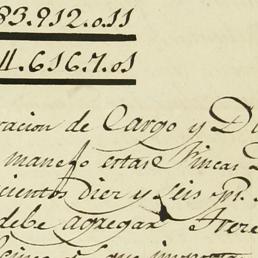 83.912.0.11
4.616.7.01
racion de Cargo y D
manejo estas Fincas
cientos diez y seis
debe agregar
que